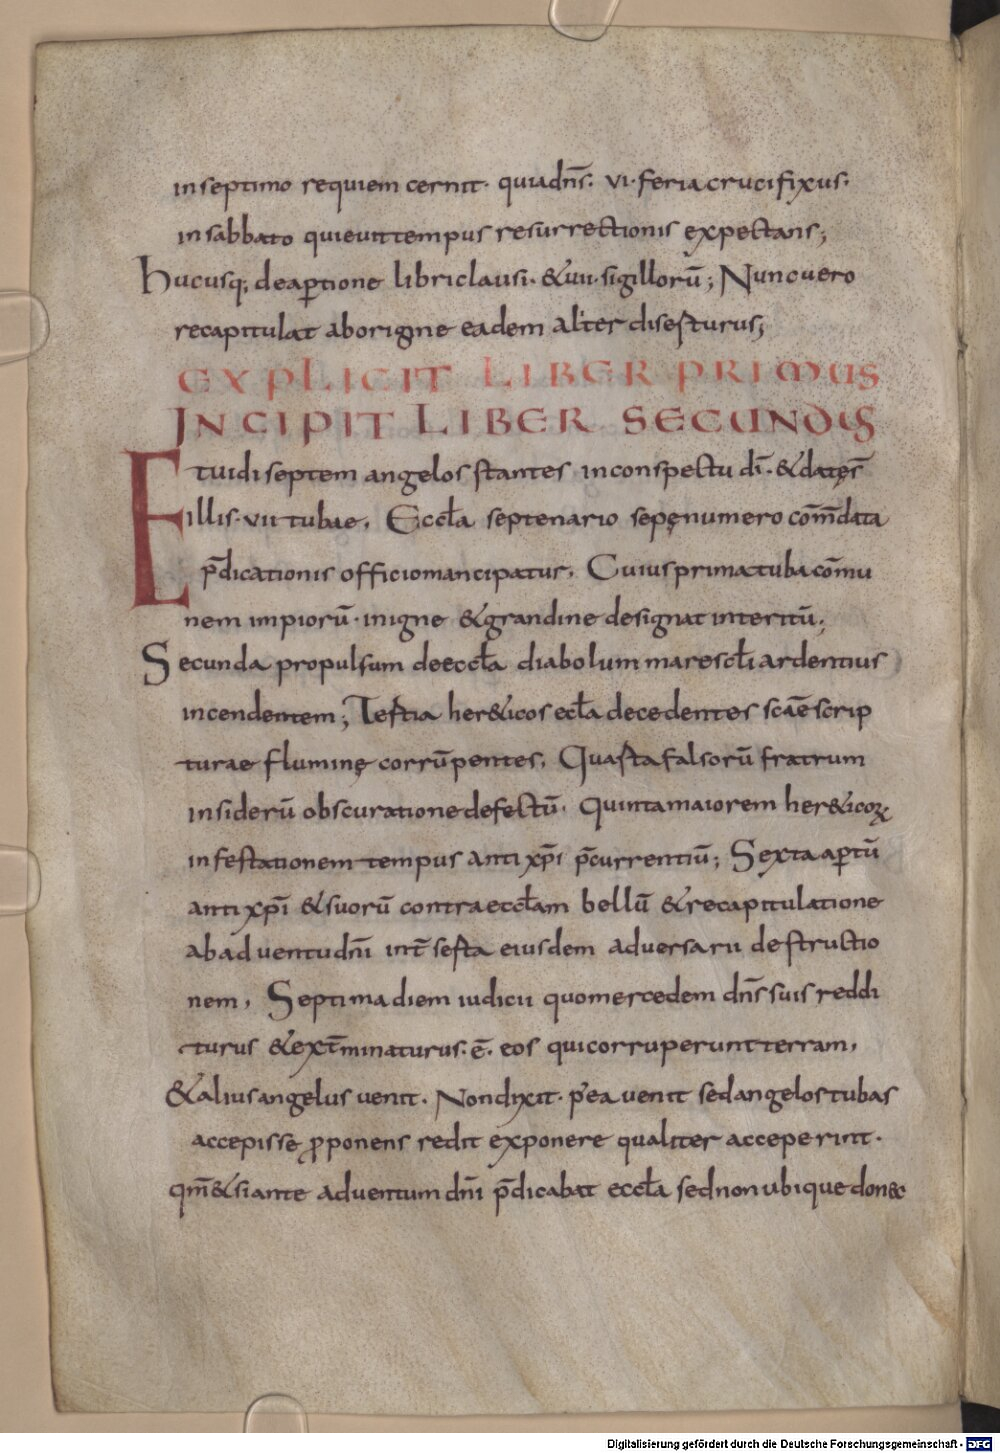 inseptimo requiem cernit· quiadn̄s· vi·feriacrucifixus·
insabbato quieuittempus resurrectionis expectans;
hucusq; deap̄tione libriclausi· &uii·sigillorū; Nuncuero
recapitulat aborigine eadem aliter diserturus;
EXPLICIT LIBER PRIMUS
INCIPIT LIBER SECUNDUS
Etuidiseptem angelos stantes inconspectu dī· &datęs̄
illis·vii tubae, Eccła septenario sepęnumero com̄data
p̄dicationis officiomancipatur, Cuiusprimatubacōmu
nem impiorū·inigne &grandine designat interitū;
Secunda propulsum deeccła diabolum maresclī ardentius
incendentem; Tertia her&icos ecła decedentes scāe scrip
turae fluminę corrūpentes, Quarta falsorū fratrum
insiderū obscuratione defectū, quintamaiorem her&icoꝝ
infestationem tempus antixp̄i p̄currentiū; Sexta ap̄tū
antixp̄i &suorū contraecclam bellū &recapitulatione
abaduentudn̄i int̄serta eiusdem aduersarii destructio
nem, Septimadiem iudicii quomercedem dn̄s suis reddi
turus &ext̄minaturus·ē· eos quicorruperuntterram,
&aliusangelus uenit· Nondixit· p'ea uenit sedangelostubas
accepisse p̱ponens redit exponere qualiter acceperint·
qm̄&siante aduentum dn̄i p̄dicabat eccła sednonubique don&
Digitalisierung gefördert durch die Deutsche Forschungsgemeinschaft - DFG